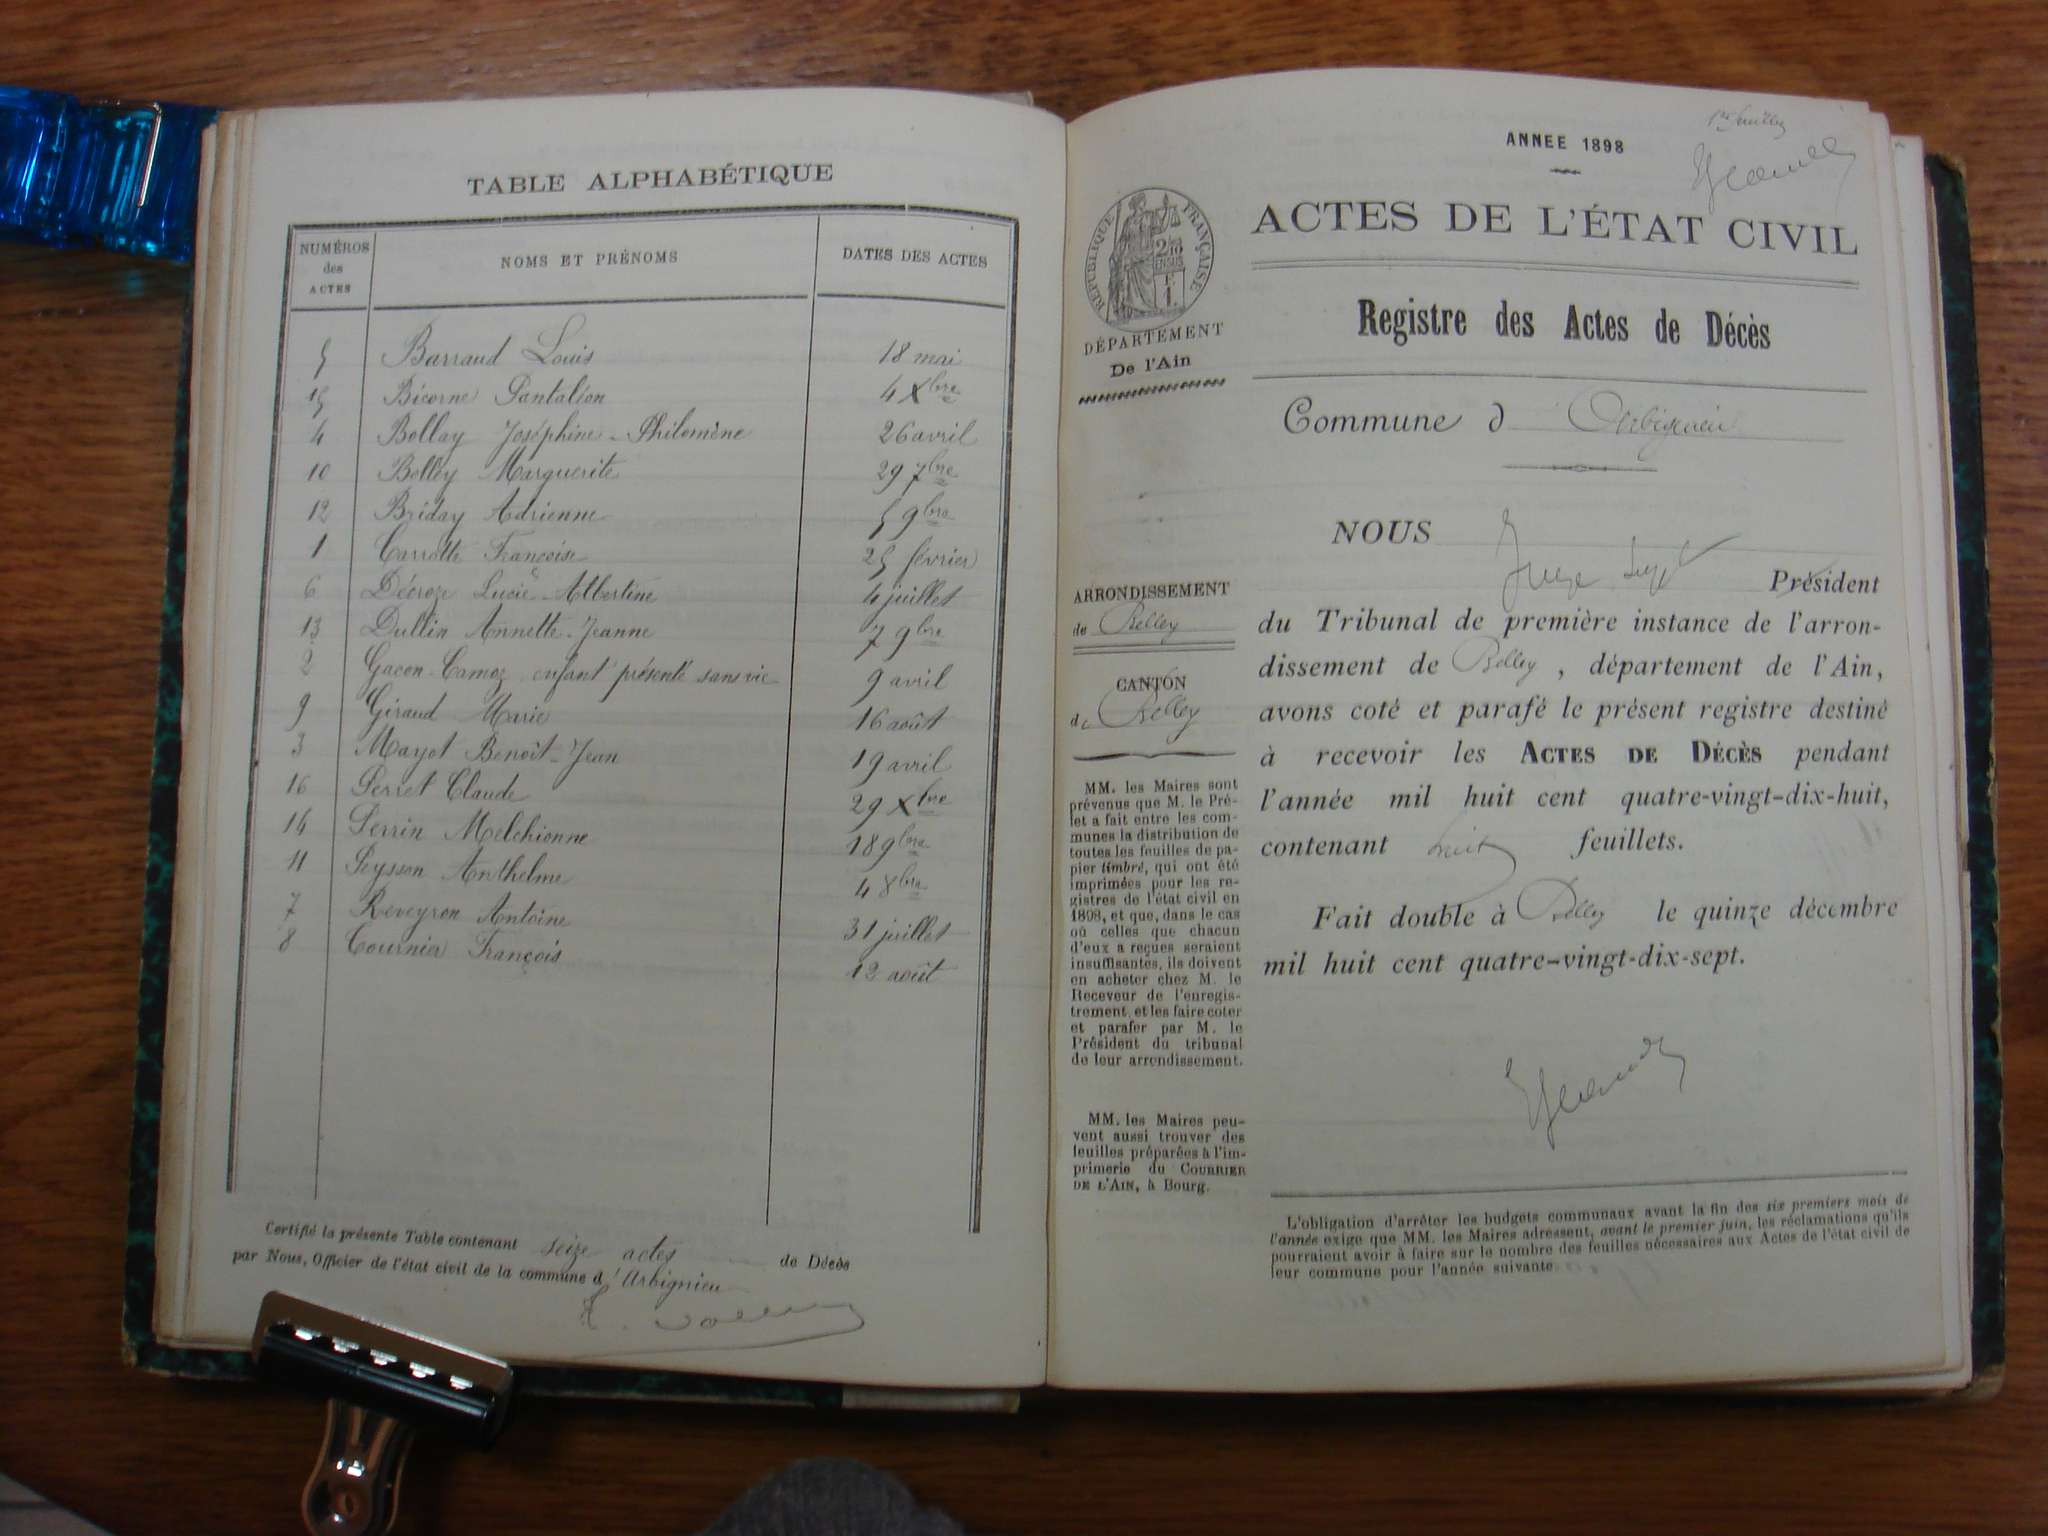 TABLE ALPHABÉTIQUE
NUMÉROS des ACTES NOMS ET PRÉNOMS DATES DES ACTES
5 Barraud Louis 18 mai
15 Bicorne Pantaléon 4 Xbre
4 Bollay Joséphine-Philomène 26 avril
10 Bolley Marguerite 29 7bre
12 Briday Adrienne 5 9bre
1 Carrotte Françoise 25 février
6 Décroze Lucie-Albertine 4 juillet
13 Dullin Annette-Jeanne 7 9bre
2 Gacon-Camoz enfant présenté sans vie 9 avril
9 Giraud Marie 16 août
3 Mayot Benoît-Jean 19 avril
16 Perret Claude 29 Xbre
14 Perrin Melchionne 18 9bre
11 Peysson Anthelme 4 8bre
7 Reveyron Antoine 31 juillet
8 Tournier François 12 août
Certifié la présente Table contenant seize actes de Décès
par Nous, Officier de l'état civil de la commune d'Arbignieu
ANNEE 1898
ACTES DE L'ÉTAT CIVIL
RÉPUBLIQUE FRANÇAISE
DÉPARTEMENT
De l'Ain
Registre des Actes de Décès
Commune d Arbignieu
NOUS Juge Président
du Tribunal de première instance de l'arron-
dissement de Belley, département de l'Ain,
avons coté et parafé le présent registre destiné
à recevoir les ACTES DE DÉCÈS pendant
l'année mil huit cent quatre-vingt-dix-huit,
contenant huit feuillets.
Fait double à Belley le quinze décembre
mil huit cent quatre-vingt-dix-sept.
ARRONDISSEMENT
de Belley
CANTON
de Belley
MM. les Maires sont
prévenus que M. le Pré-
fet a fait entre les com-
munes la distribution de
toutes les feuilles de pa-
pier timbré, qui ont été
imprimées pour les re-
gistres de l'état civil en
1898, et que, dans le cas
où celles que chacun
d'eux a reçues seraient
insuffisantes, ils doivent
en acheter chez M. le
Receveur de l'enregis-
trement, et les faire coter
et parafer par M. le
Président du tribunal
de leur arrondissement.
MM. les Maires peu-
vent aussi trouver des
feuilles préparées à l'im-
primerie du COURRIER
DE L'AIN, à Bourg.
L'obligation d'arrêter les budgets communaux avant la fin des six premiers mois de
l'année exige que MM. les Maires adressent, avant le premier juin, les réclamations qu'ils
pourraient avoir à faire sur le nombre des feuilles nécessaires aux Actes de l'état civil de
leur commune pour l'année suivante.